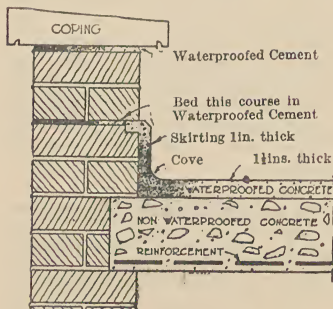 COPING
Waterproofed Cement
Bed this course in
Waterproofed Cement
Skirting 1in. thick
Cove
1½ins. thick
WATERPROOFED CONCRETE
NON WATERPROOFED CONCRETE
REINFORCEMENT